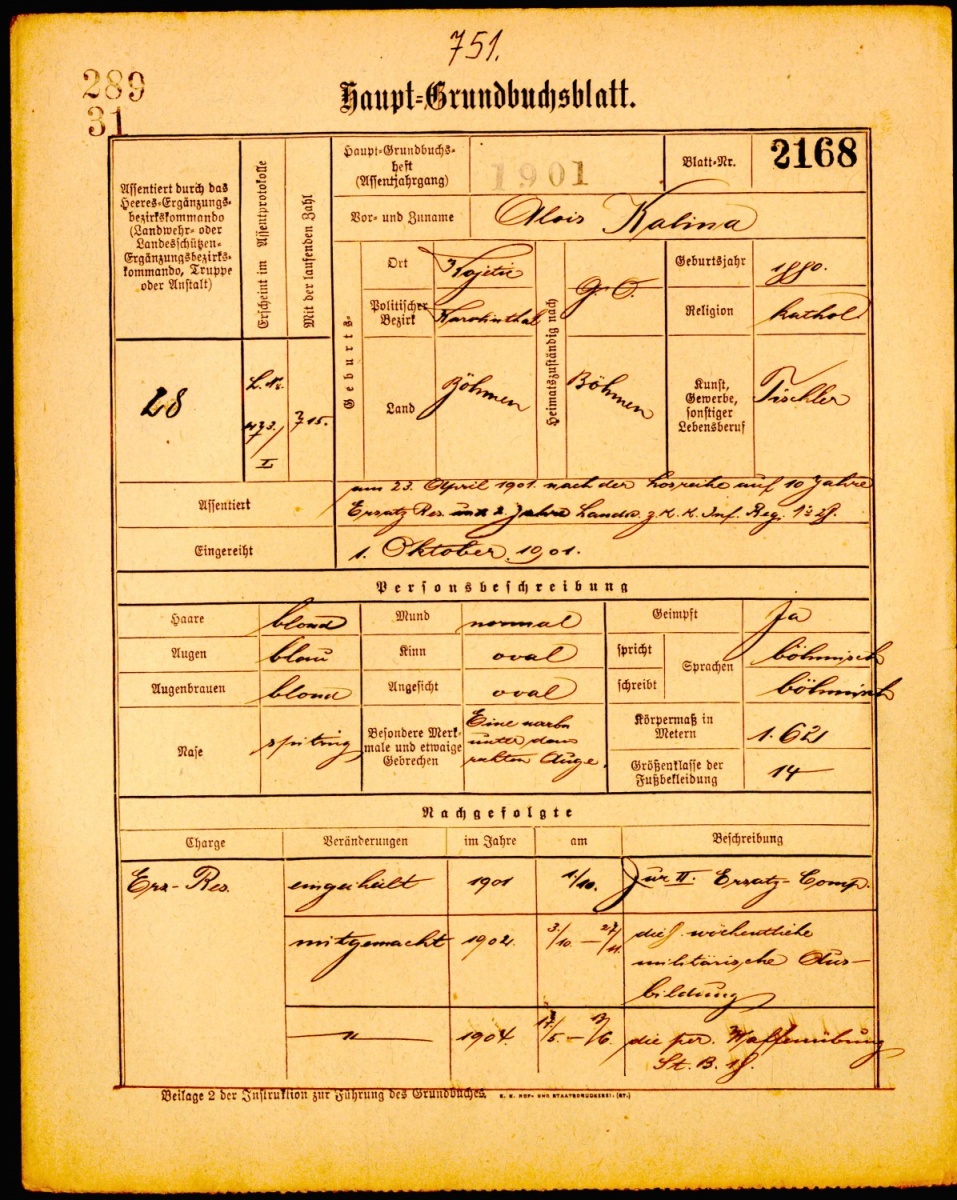 751.
289
31
Haupt-Grundbuchsblatt.
Assentiert durch das
Heeres-Ergänzungs-
bezirkskommando
(Landwehr- oder
Landesschützen-
Ergänzungsbezirks-
kommando, Truppe
oder Anstalt)
Erscheint im Assentprotokolle
Mit der laufenden Zahl
28
715.
Haupt-Grundbuchs-
heft
(Assentjahrgang)
1901
Blatt-Nr.
2168
Vor- und Zuname
Alois Kalina
Geburts-
Ort
Politischer
Bezirk
Karolinthal
Land
Böhmen
Heimatszuständig nach
Böhmen
Geburtsjahr
1880.
Religion
kathol
Kunst,
Gewerbe,
sonstiger
Lebensberuf
Tischler
Assentiert
am 23. April 1901. nach der Losreihe auf 10 Jahre
Ersatz Res. Landw. z. k. k. Inf. Reg.
Eingereiht
1. Oktober 1901.
Personsbeschreibung
Haare
blond
Augen
blau
Augenbrauen
blond
Nase
Mund
normal
Kinn
oval
Angesicht
oval
Besondere Merk-
male und etwaige
Gebrechen
Eine narbe
unter dem
rechten Auge.
Geimpft
Ja
spricht
schreibt
Sprachen
böhmisch
böhmisch
Körpermaß in
Metern
1.62
Größenklasse der
Fußbekleidung
14
Nachgefolgte
Charge
Veränderungen
im Jahre
am
Beschreibung
Ers-Res.
eingetheilt
1901
1/10.
zur II. Ersatz-Comp.
mitgemacht
1902.
die 8 wöchentliche
militärische Aus-
bildung
–„–
1904.
die per. Waffenübung
St. B. 18.
Beilage 2 der Instruktion zur Führung des Grundbuches.
K. K. HOF- UND STAATSDRUCKEREI. (ST.)